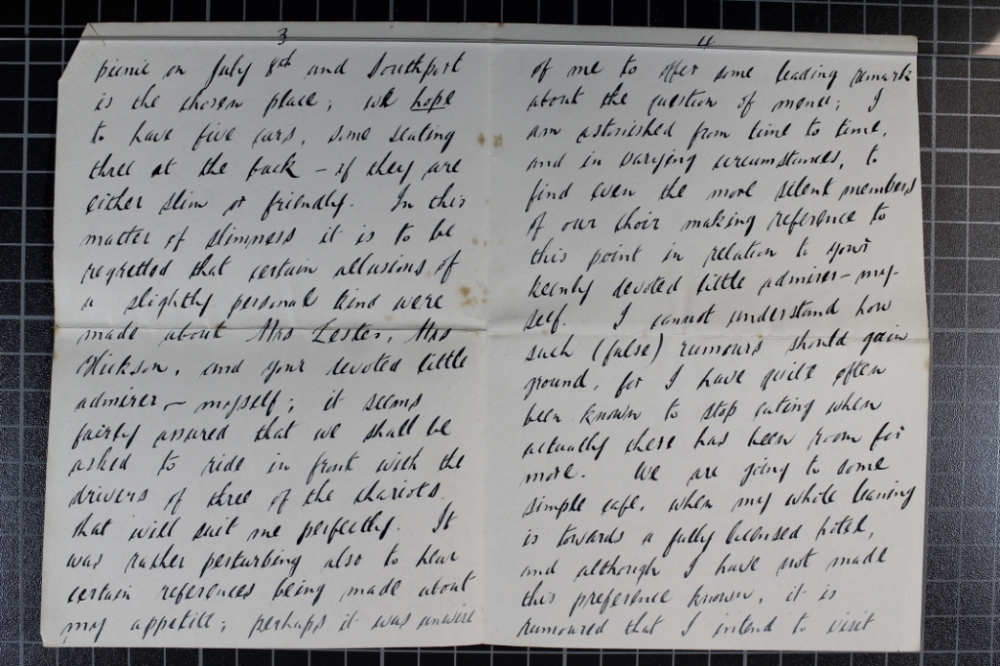 3
picnic on July 8th and Southport
is the chosen place; we hope
to have five cars, some seating
three at the back – if they are
either slim or friendly. In this
matter of slimness it is to be
regretted that certain allusions of
a slightly personal kind were
made about Mrs Lester, Mrs
Hickson, and your devoted little
admirer – myself; it seems
fairly assured that we shall be
asked to ride in front with the
drivers of three of the chariots.
that will suit me perfectly. It
was rather perturbing also to hear
certain references being made about
my appetite; perhaps it was unwise
4
of me to offer some leading remark
about the question of menu; I
am astonished from time to time,
and in varying circumstances, to
find even the more silent members
of our choir making reference to
this point in relation to your
keenly devoted little admirer – my-
self. I cannot understand how
such (false) rumours should gain
ground, for I have quite often
been known to stop eating when
actually there has been room for
more. We are going to some
simple cafe, when my whole leaning
is towards a fully licensed hotel,
and although I have not made
this preference known, it is
rumoured that I intend to visit